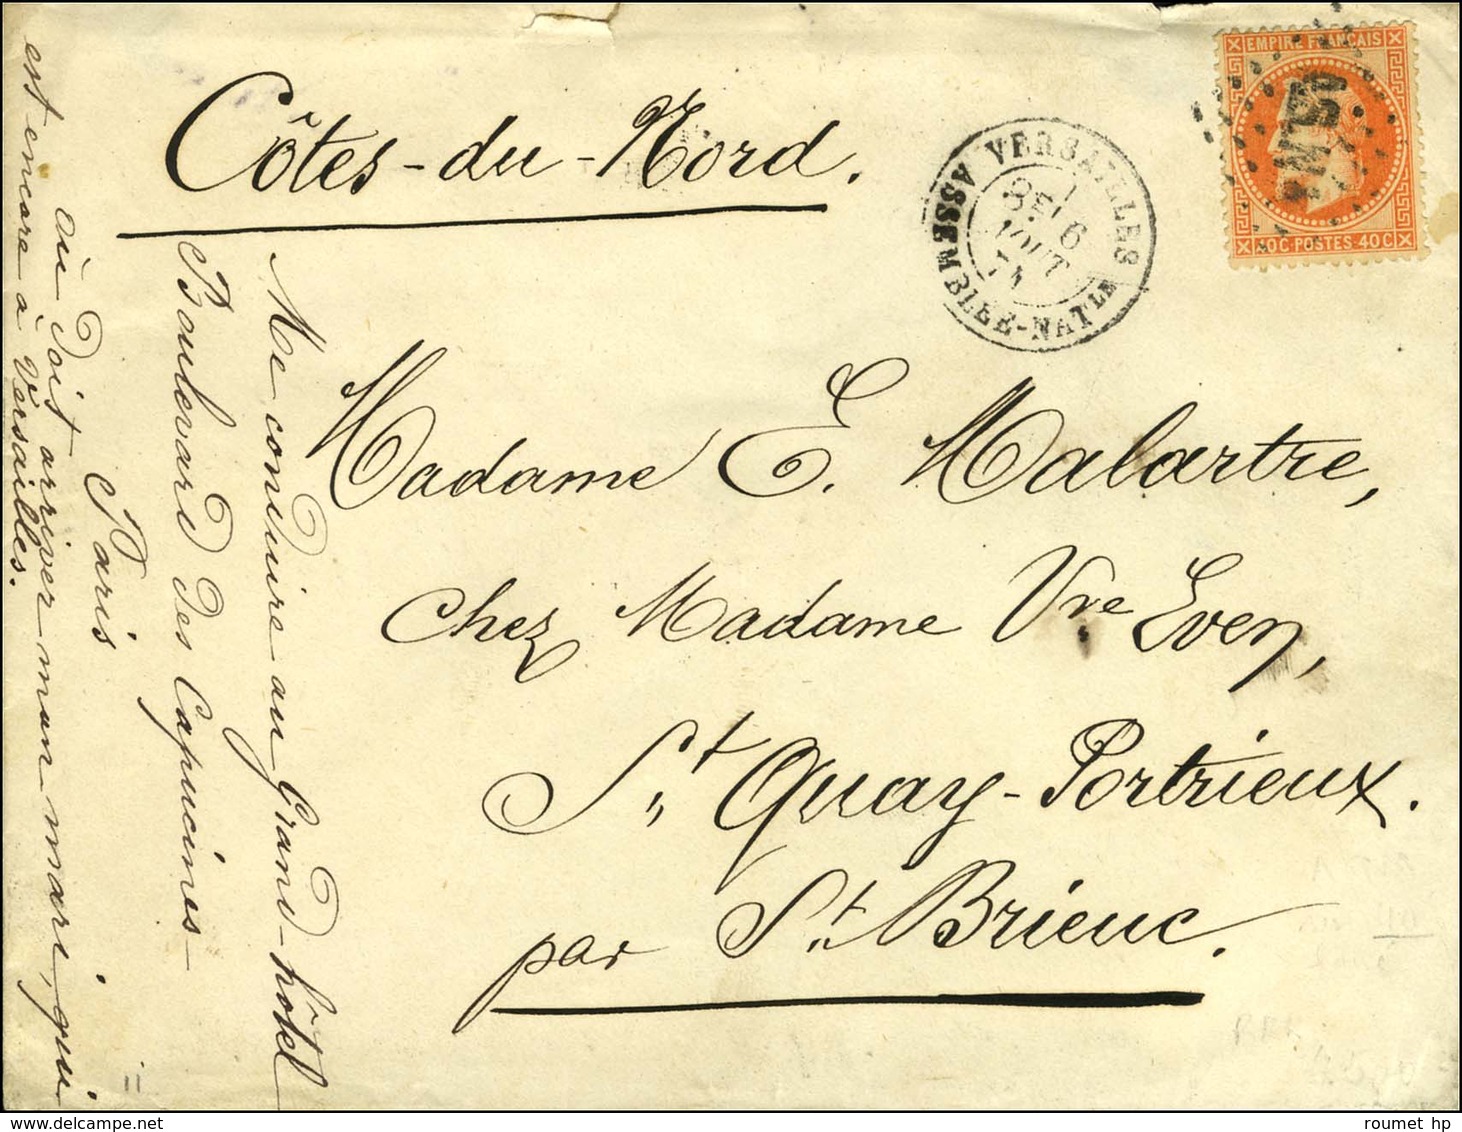 Côtes-du-Nord.
EMPIRE FRANCAIS
40 C·POSTES·40 C
VERSAILLES
ASSEMBLÉE-NATLE
6
AOUT
71
Madame E. Malartre,
chez Madame Vve Even,
St Quay-Portrieux.
par St Brieuc.
Me conduire au Grand-hôtel
Boulevard des Capucines-
Paris
où doit arriver mon mari, qui
est encore à Versailles.
roumet hp